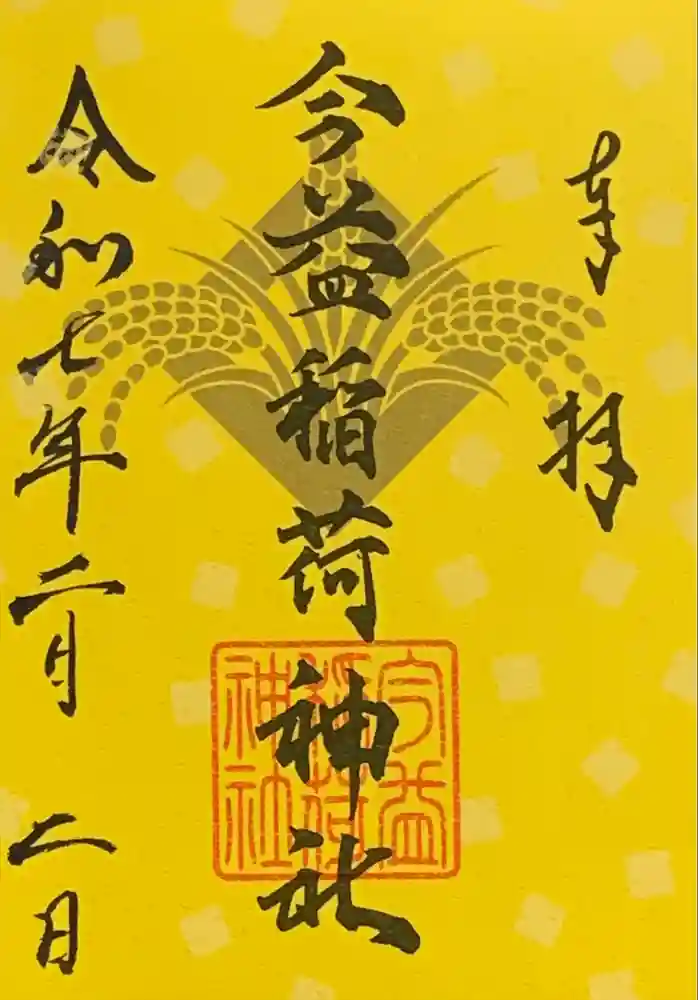 奉拝
今益稲荷神社
今益
稲荷
神社
令和七年二月二日